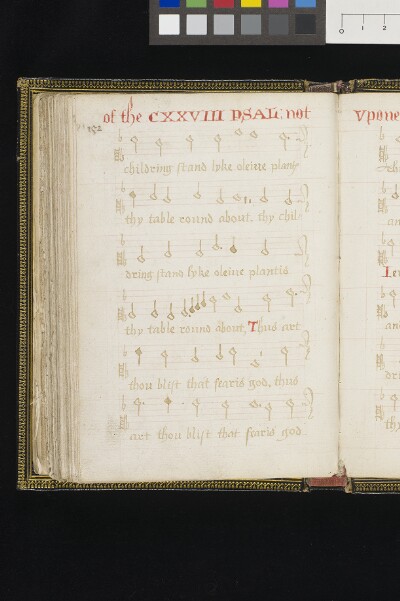 of the CXXVIII PSAL: not
152
childring stand lyke oleiue plant
thy table round about, thy chil-
dring stand lyke oleiue plantis
thy table round about, Thus art
thou blist that fearis god, thus
art thou blist that fearis god
Vpone
0 1 2